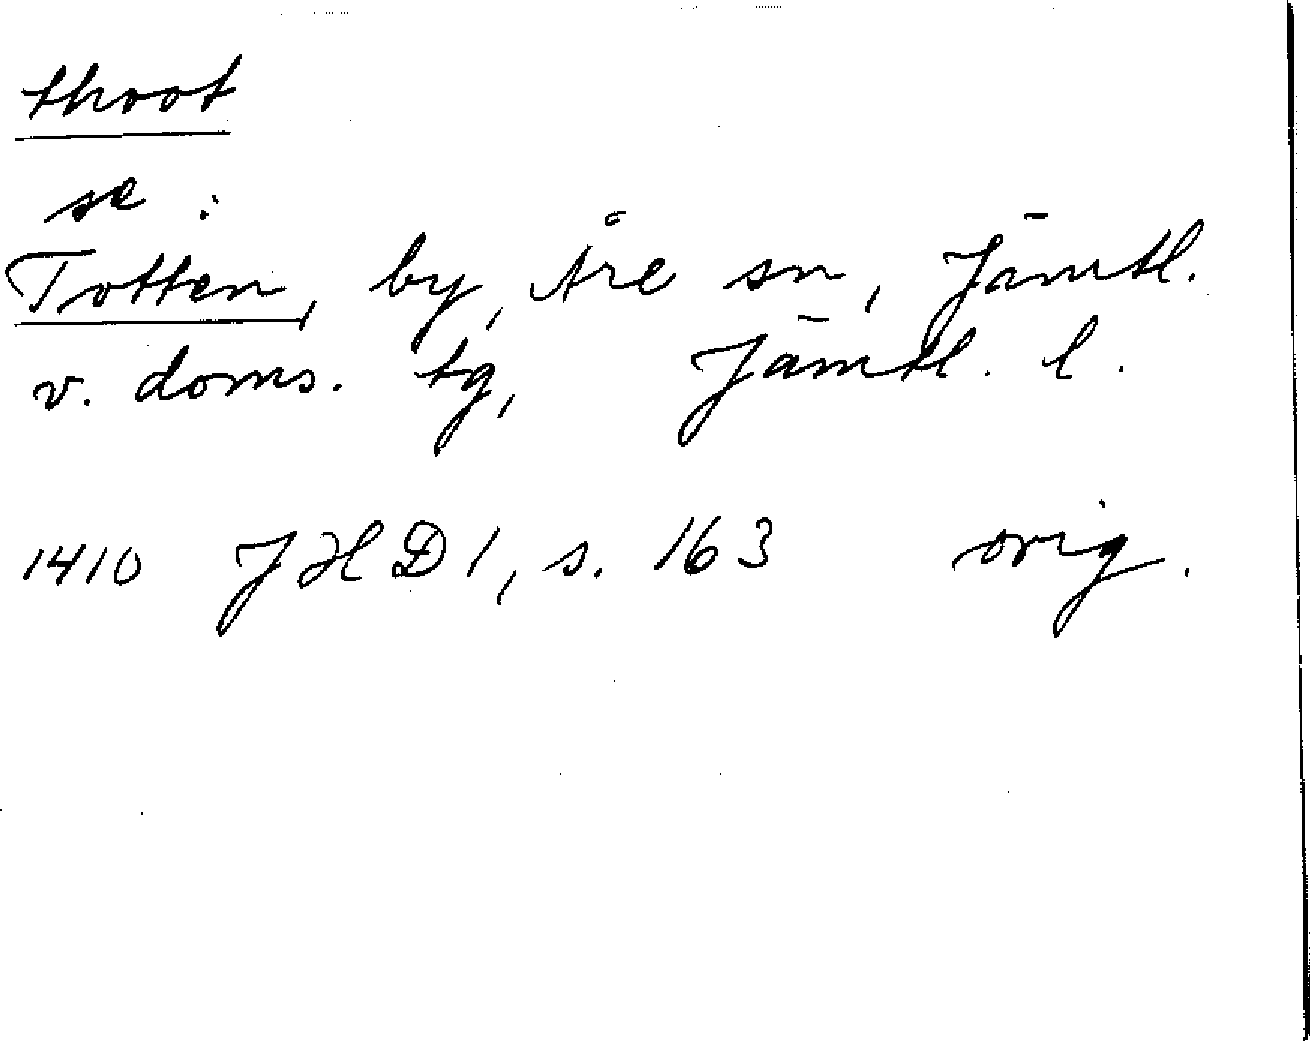 thoot
se :
Totten, by, Åre sn, Jämtl.
v. doms. tg, Jämtl. l.
1410 JHD 1, s. 163 orig.